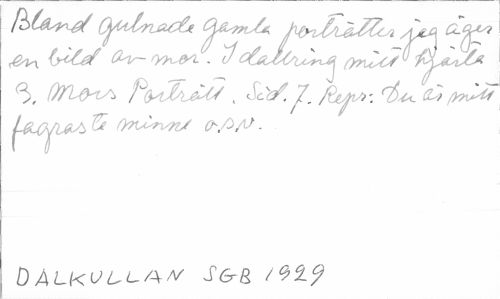 Bland gulnade gamla porträtter jag äger
en bild av mor. I dallring mitt hjärta
3. Mors Porträtt. Sid. 7. Repr: Du är mitt
fagraste minne o.s.v.
DALKULLAN SGB 1929